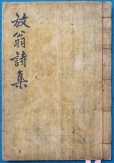 放翁詩集